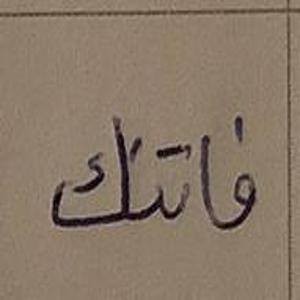 فاتتك